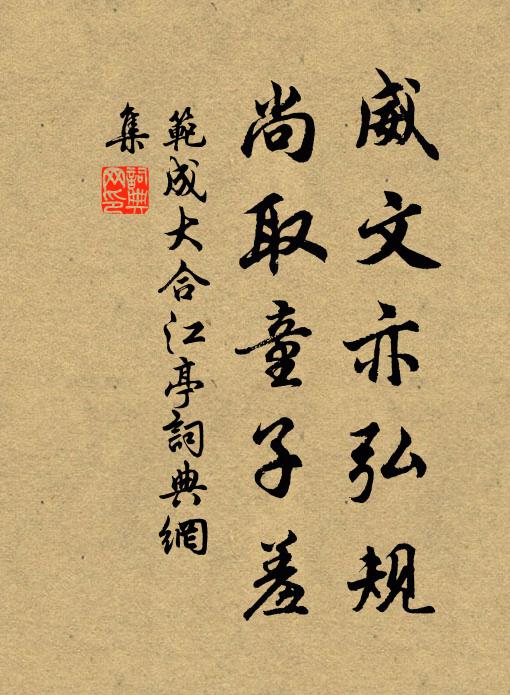 威文亦弘規
尚取童子羞
範成大合江亭詞典網
集
詞典网印